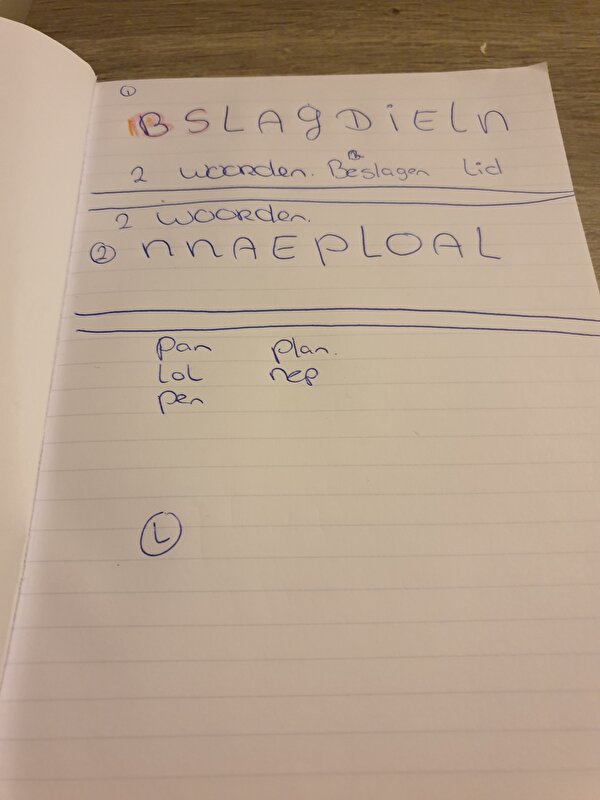 1
BSLAGDIELN
2 woorden. Beslagen Lid
2 woorden.
2 NNAEPLOAL
pan plan.
LOL nep
pen
L